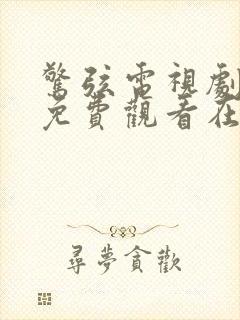 驚弦電視劇
免費觀看在
尋夢貪歡